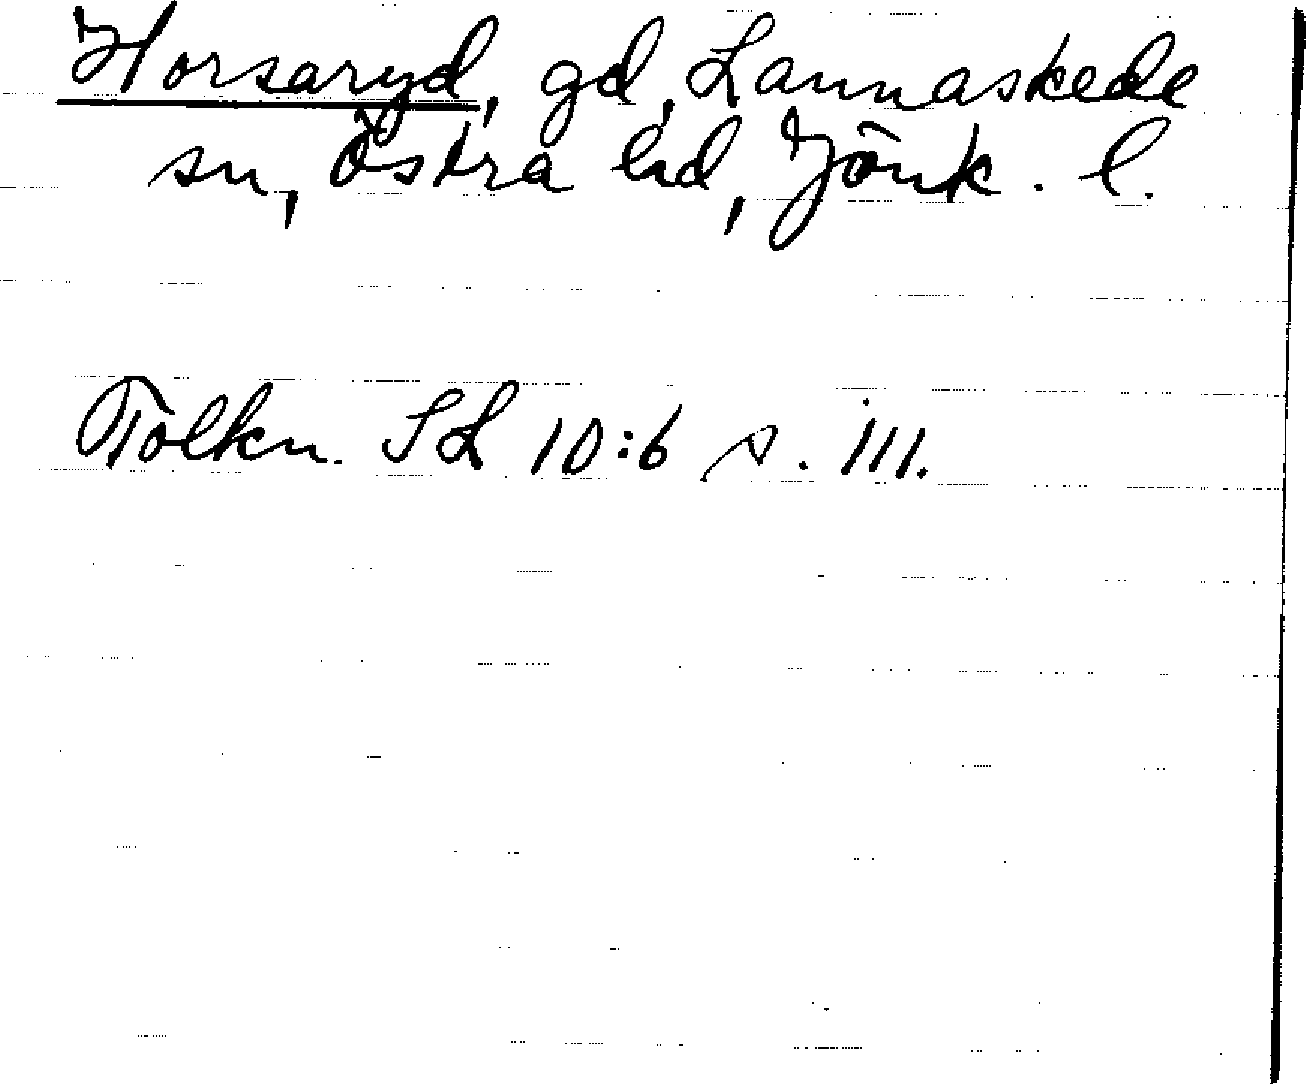 Horsaryd, gd, Lannaskede
sn, Östra hd, Jönk. l.
Tolkn. SL 10:6 s. 111.